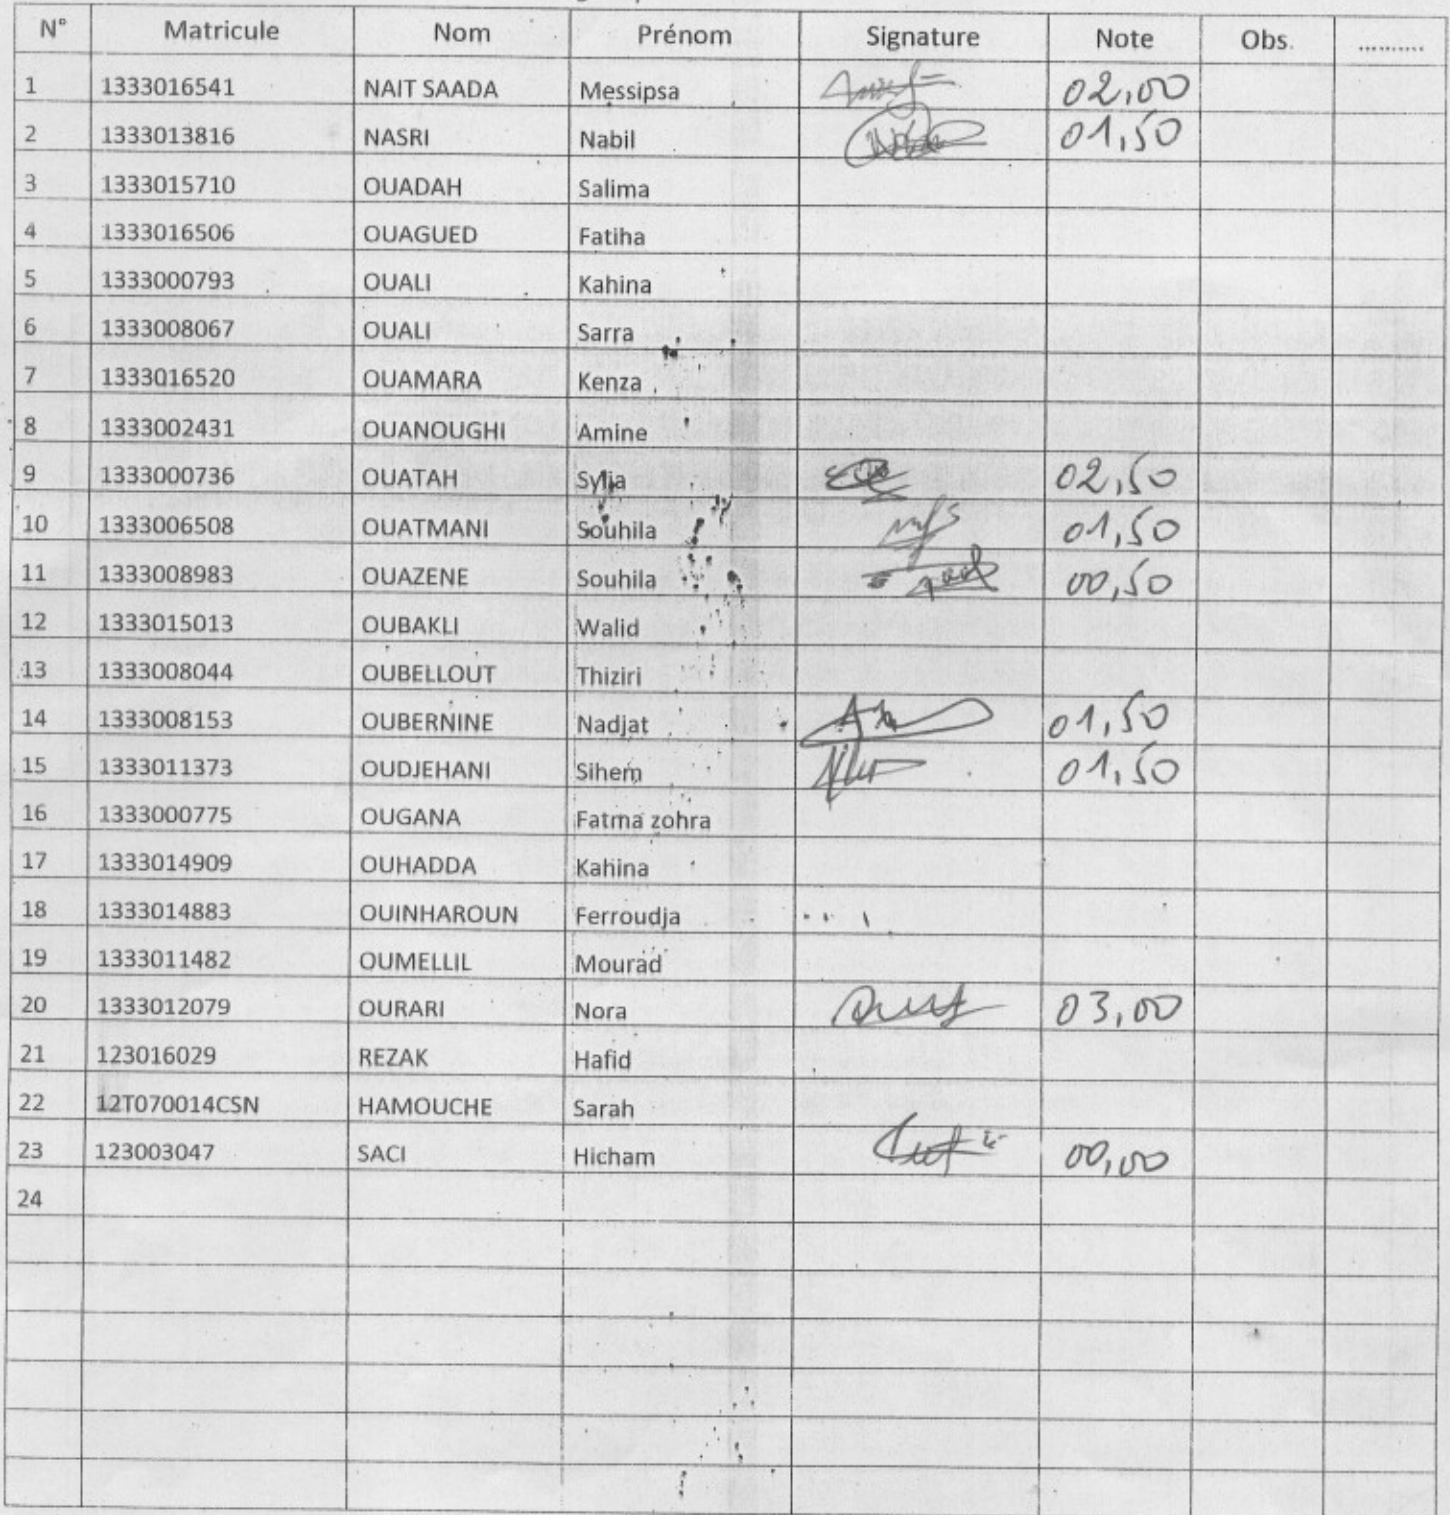 N° Matricule Nom Prénom Signature Note Obs. ..........
1 1333016541 NAIT SAADA Messipsa 02,00
2 1333013816 NASRI Nabil 01,50
3 1333015710 OUADAH Salima
4 1333016506 OUAGUED Fatiha
5 1333000793 OUALI Kahina
6 1333008067 OUALI Sarra
7 1333016520 OUAMARA Kenza
8 1333002431 OUANOUGHI Amine
9 1333000736 OUATAH Sylia 02,50
10 1333006508 OUATMANI Souhila 01,50
11 1333008983 OUAZENE Souhila 00,50
12 1333015013 OUBAKLI Walid
13 1333008044 OUBELLOUT Thiziri
14 1333008153 OUBERNINE Nadjat 01,50
15 1333011373 OUDJEHANI Sihem 01,50
16 1333000775 OUGANA Fatma zohra
17 1333014909 OUHADDA Kahina
18 1333014883 OUINHAROUN Ferroudja
19 1333011482 OUMELLIL Mourad
20 1333012079 OURARI Nora 03,00
21 123016029 REZAK Hafid
22 12T070014CSN HAMOUCHE Sarah
23 123003047 SACI Hicham 00,00
24